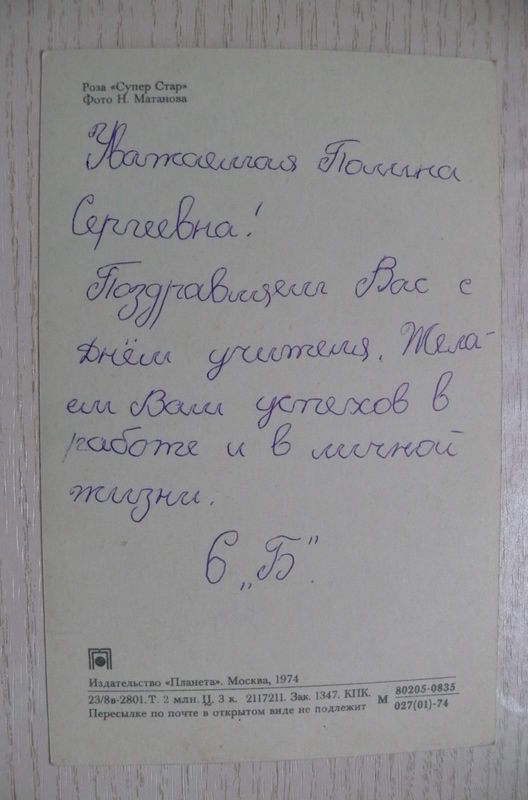 Роза «Супер Стар»
Фото Н. Матанова
Уважаемая Полина
Сергеевна!
Поздравляем Вас с
днём учителя. Жела-
ем Вам успехов в
работе и в личной
жизни.
6 „Б".
Издательство «Планета». Москва, 1974
23/8в-2801. Т. 2 млн. Ц. 3 к. 2117211. Зак. 1347. КПК.
Пересылке по почте в открытом виде не подлежит
М 80205-0835
027(01)-74